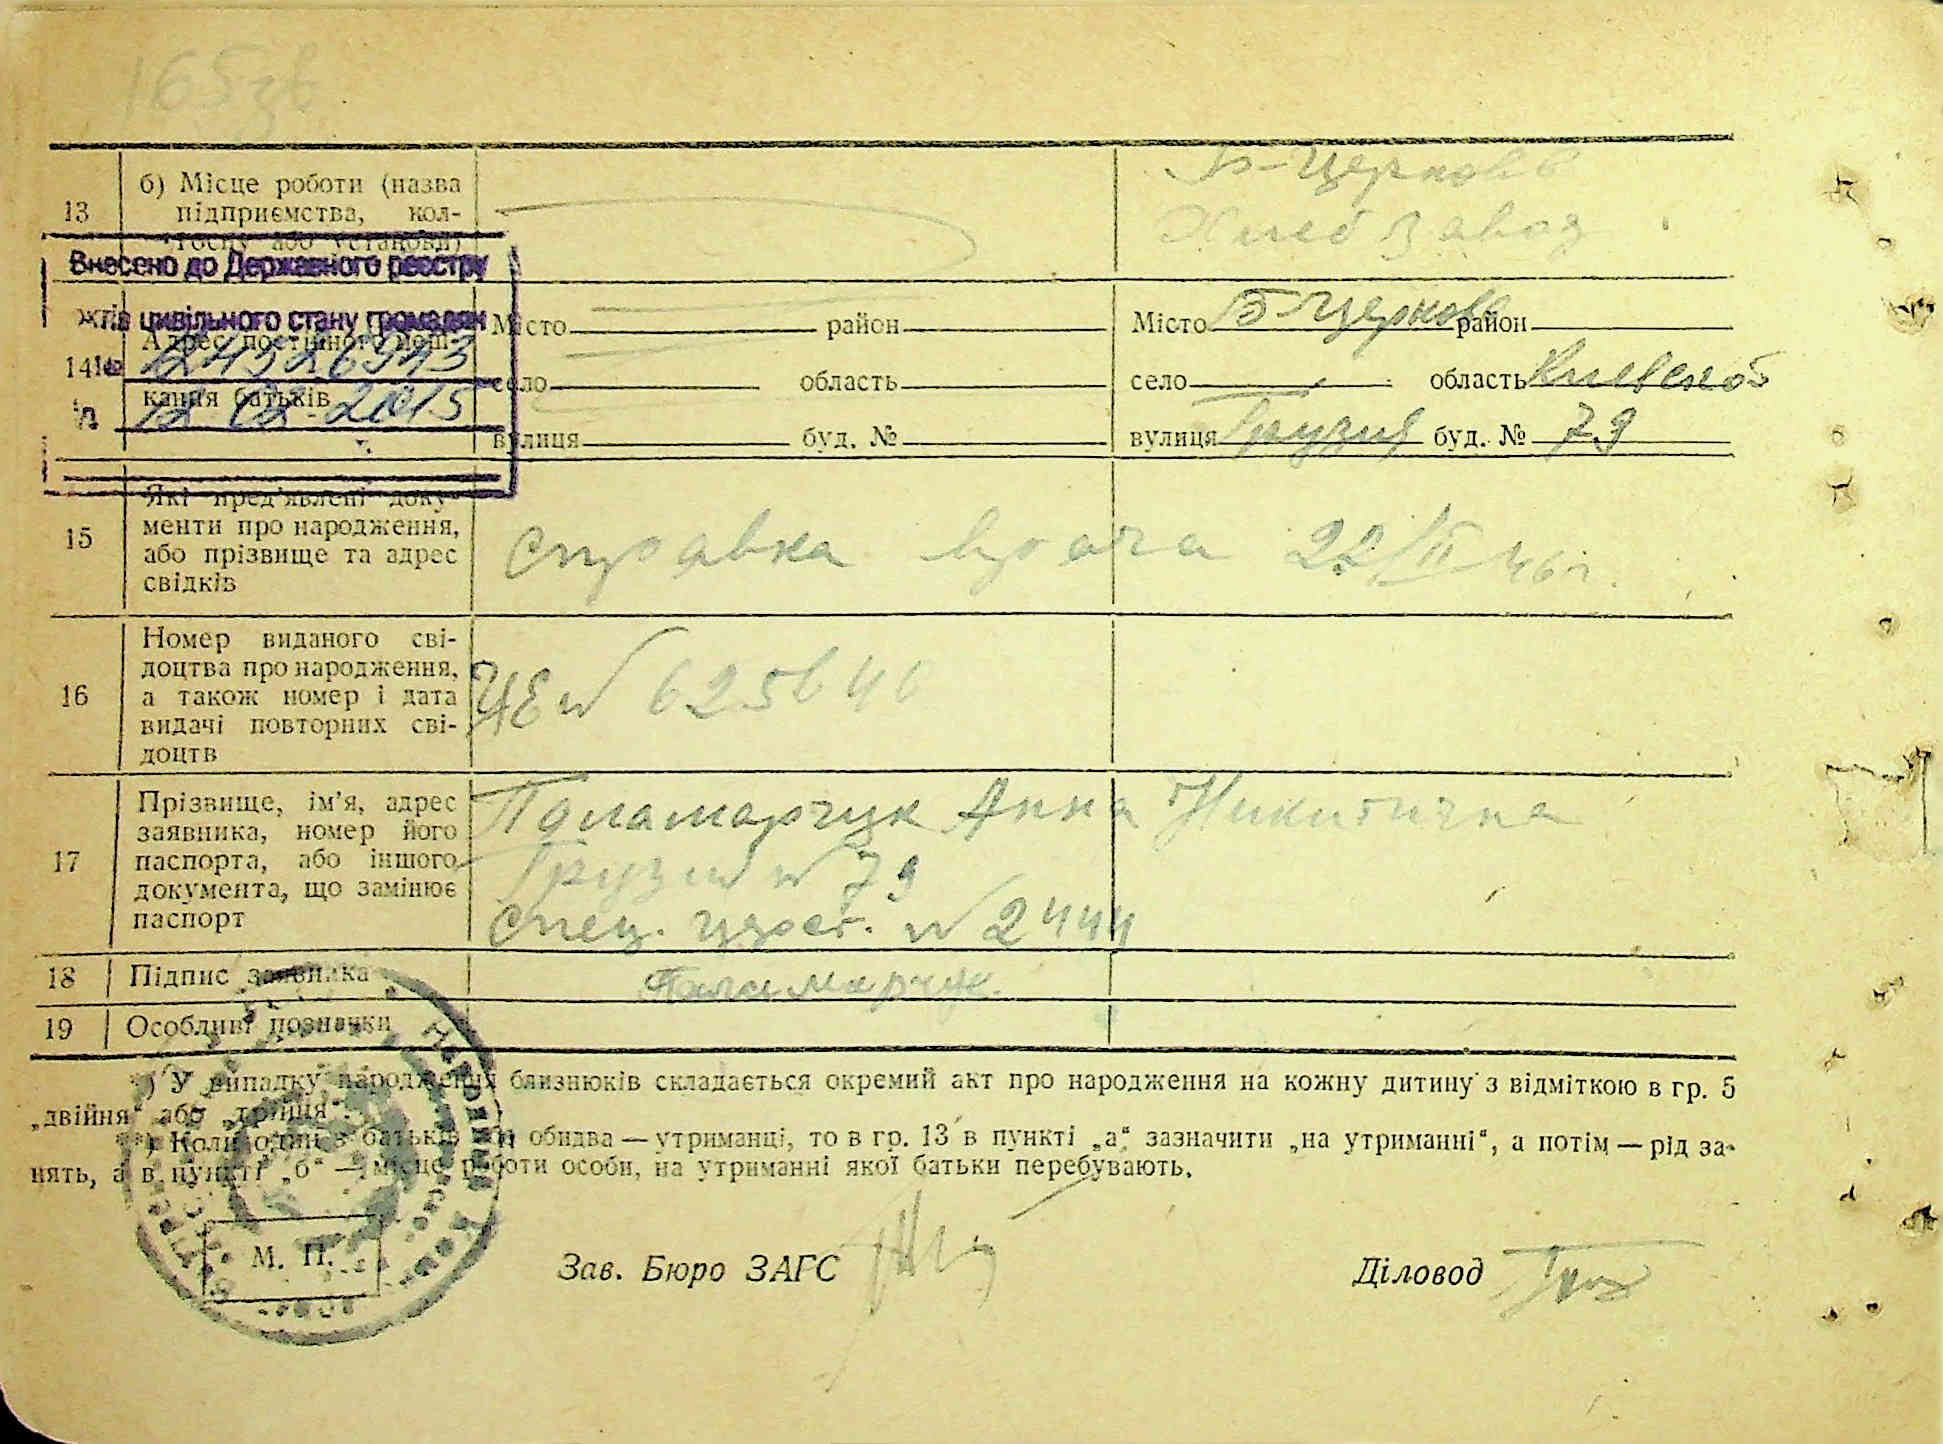 165зв
13
б) Місце роботи (назва
підприємства, кол-
госпу або установи)
Б-Церковь
Хлеб завод
Внесено до Державного реєстру
актів цивільного стану громадян
№
12-02-2015
14
Адрес постійного меш-
кання батьків
Місто район
село область
вулиця буд. №
Місто Б-Церковь район
село область Киевской
вулиця Грузия буд. № 79
15
Які пред’явлені доку-
менти про народження,
або прізвище та адрес
свідків
Справка врача 22/II-46 г.
16
Номер виданого сві-
доцтва про народження,
а також номер і дата
видачі повторних сві-
доцтв
17
Прізвище, ім’я, адрес
заявника, номер його
паспорта, або іншого
документа, що замінює
паспорт
Паламарчук Анна Никитична
№ 79
№ 2444
18
Підпис заявника
Паламарчук.
19
Особливі позначки
*) У випадку народження близнюків складається окремий акт про народження на кожну дитину з відміткою в гр. 5
„двійня“ або „трійця“.
**) Коли один з батьків чи обидва — утриманці, то в гр. 13 в пункті „а“ зазначити „на утриманні“, а потім — рід за-
нять, а в пункті „б“ — місце роботи особи, на утриманні якої батьки перебувають.
М. П.
Зав. Бюро ЗАГС
Діловод